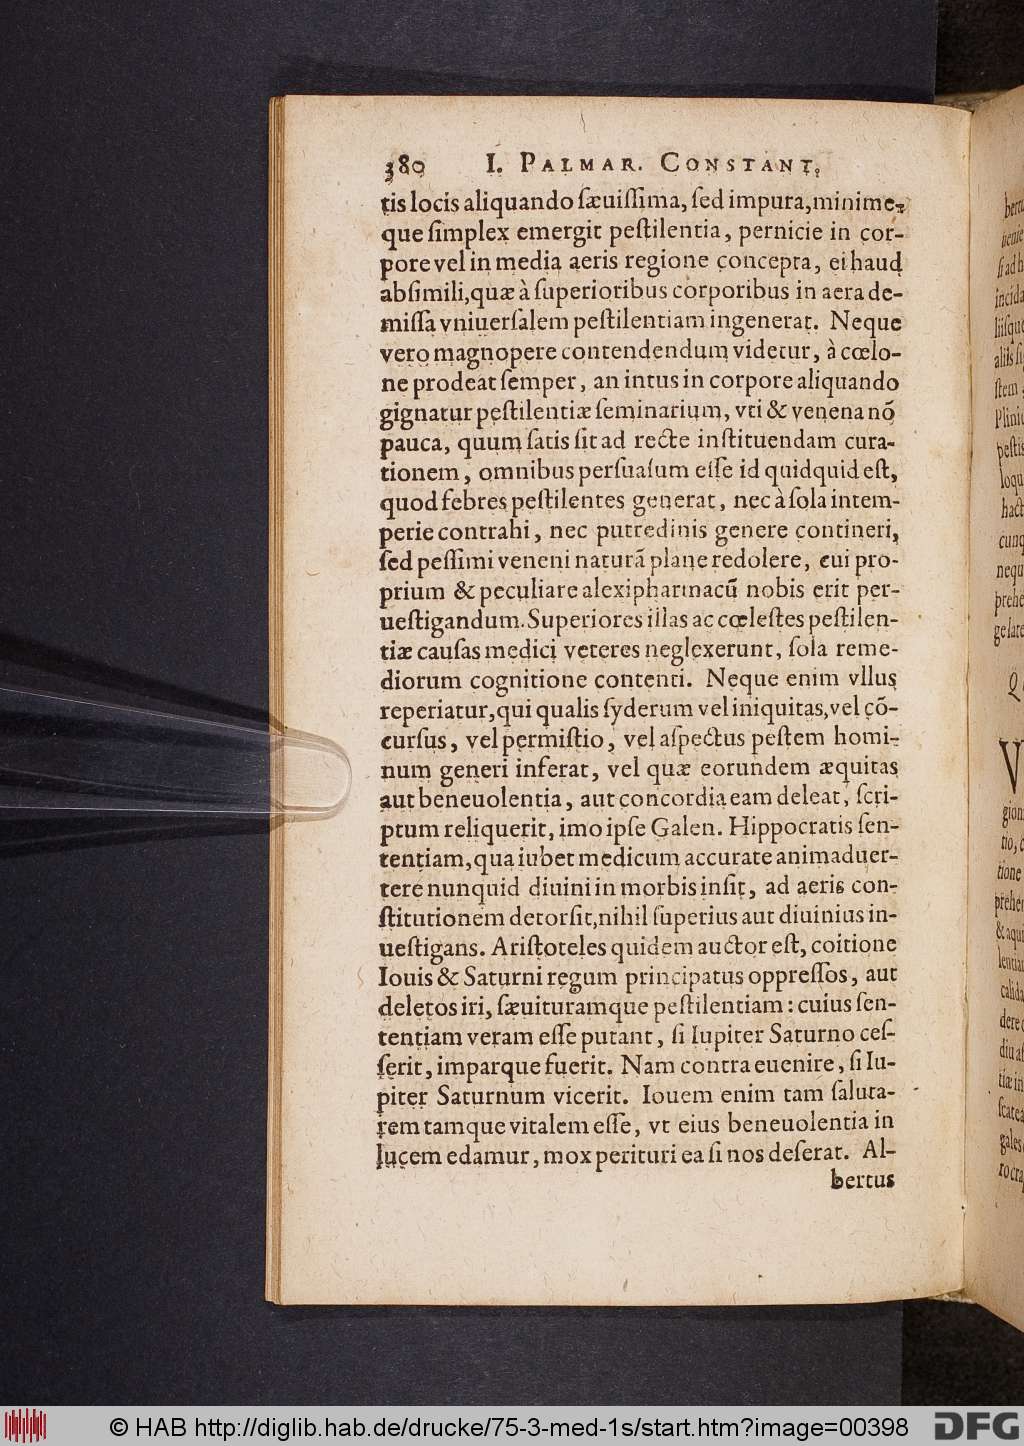 380 I. PALMAR. CONSTANT.
tis locis aliquando sæuiſſima, ſed impura, minime-
que ſimplex emergit peſtilentia, pernicie in cor-
pore vel in media aeris regione concepta, ei haud
abſimili, quæ à ſuperioribus corporibus in aera de-
miſſa vniuerſalem peſtilentiam ingenerat. Neque
vero magnopere contendendum videtur, à cœlo-
ne prodeat ſemper, an intus in corpore aliquando
gignatur peſtilentiæ ſeminarium, vti & venena nõ
pauca, quum ſatis ſit ad recte inſtituendam cura-
tionem, omnibus perſuaſum eſſe id quidquid eſt,
quod febres peſtilentes generat, nec à ſola intem-
perie contrahi, nec putredinis genere contineri,
ſed peſſimi veneni naturã plane redolere, cui pro-
prium & peculiare alexipharmacũ nobis erit per-
ueſtigandum. Superiores illas ac cœleſtes peſtilen-
tiæ cauſas medici veteres neglexerunt, ſola reme-
diorum cognitione contenti. Neque enim vllus
reperiatur, qui qualis ſyderum vel iniquitas, vel cõ-
curſus, vel permiſtio, vel aſpectus peſtem homi-
num generi inferat, vel quæ eorundem æquitas
aut beneuolentia, aut concordia eam deleat, ſcri-
ptum reliquerit, imo ipſe Galen. Hippocratis ſen-
tentiam, qua iubet medicum accurate animaduer-
tere nunquid diuini in morbis inſit, ad aeris con-
ſtitutionem detorſit, nihil ſuperius aut diuinius in-
ueſtigans. Ariſtoteles quidem auctor eſt, coitione
Iouis & Saturni regum principatus oppreſſos, aut
deletos iri, ſæuituramque peſtilentiam: cuius ſen-
tentiam veram eſſe putant, ſi Iupiter Saturno ceſ-
ſerit, imparque fuerit. Nam contra euenire, ſi Iu-
piter Saturnum vicerit. Iouem enim tam ſaluta-
rem tamque vitalem eſſe, vt eius beneuolentia in
lucem edamur, mox perituri ea ſi nos deſerat. Al-
bertus
© HAB http://diglib.hab.de/drucke/75-3-med-1s/start.htm?image=00398
DFG